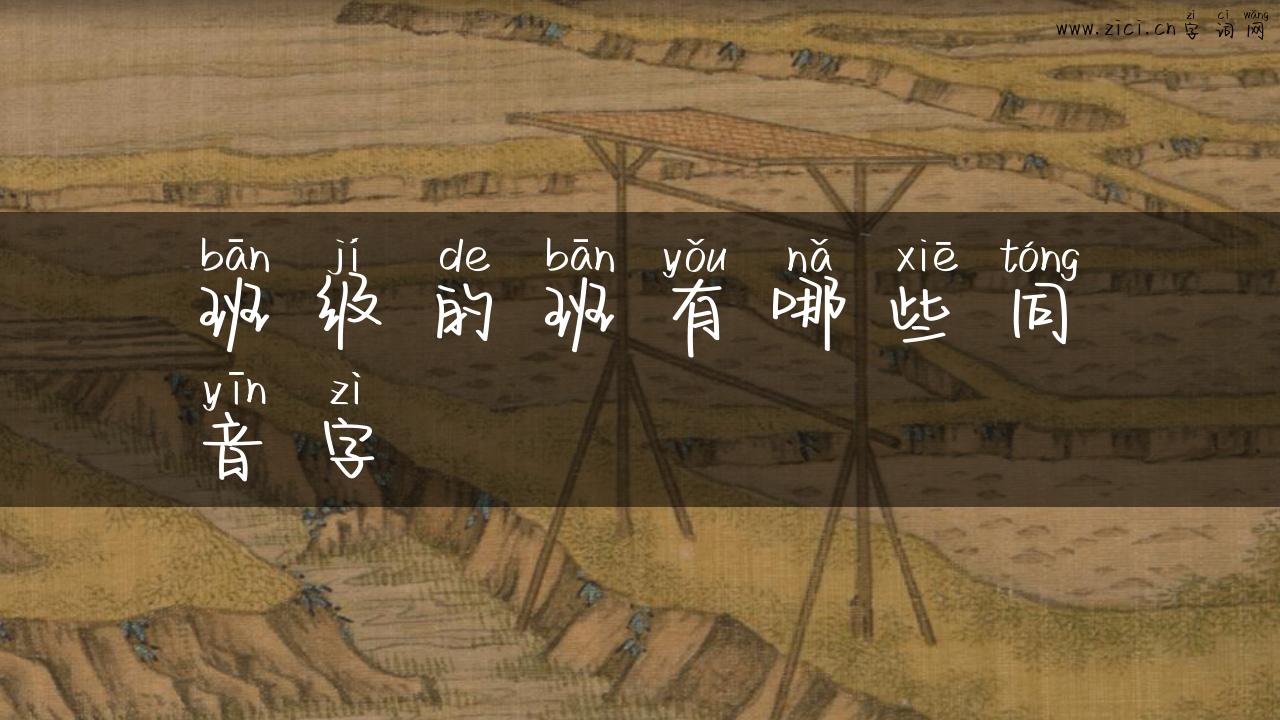 zì cí wǎng
www.zici.cn 字词网
bān jí de bān yǒu nǎ xiē tóng
班级的班有哪些同
yīn zì
音字